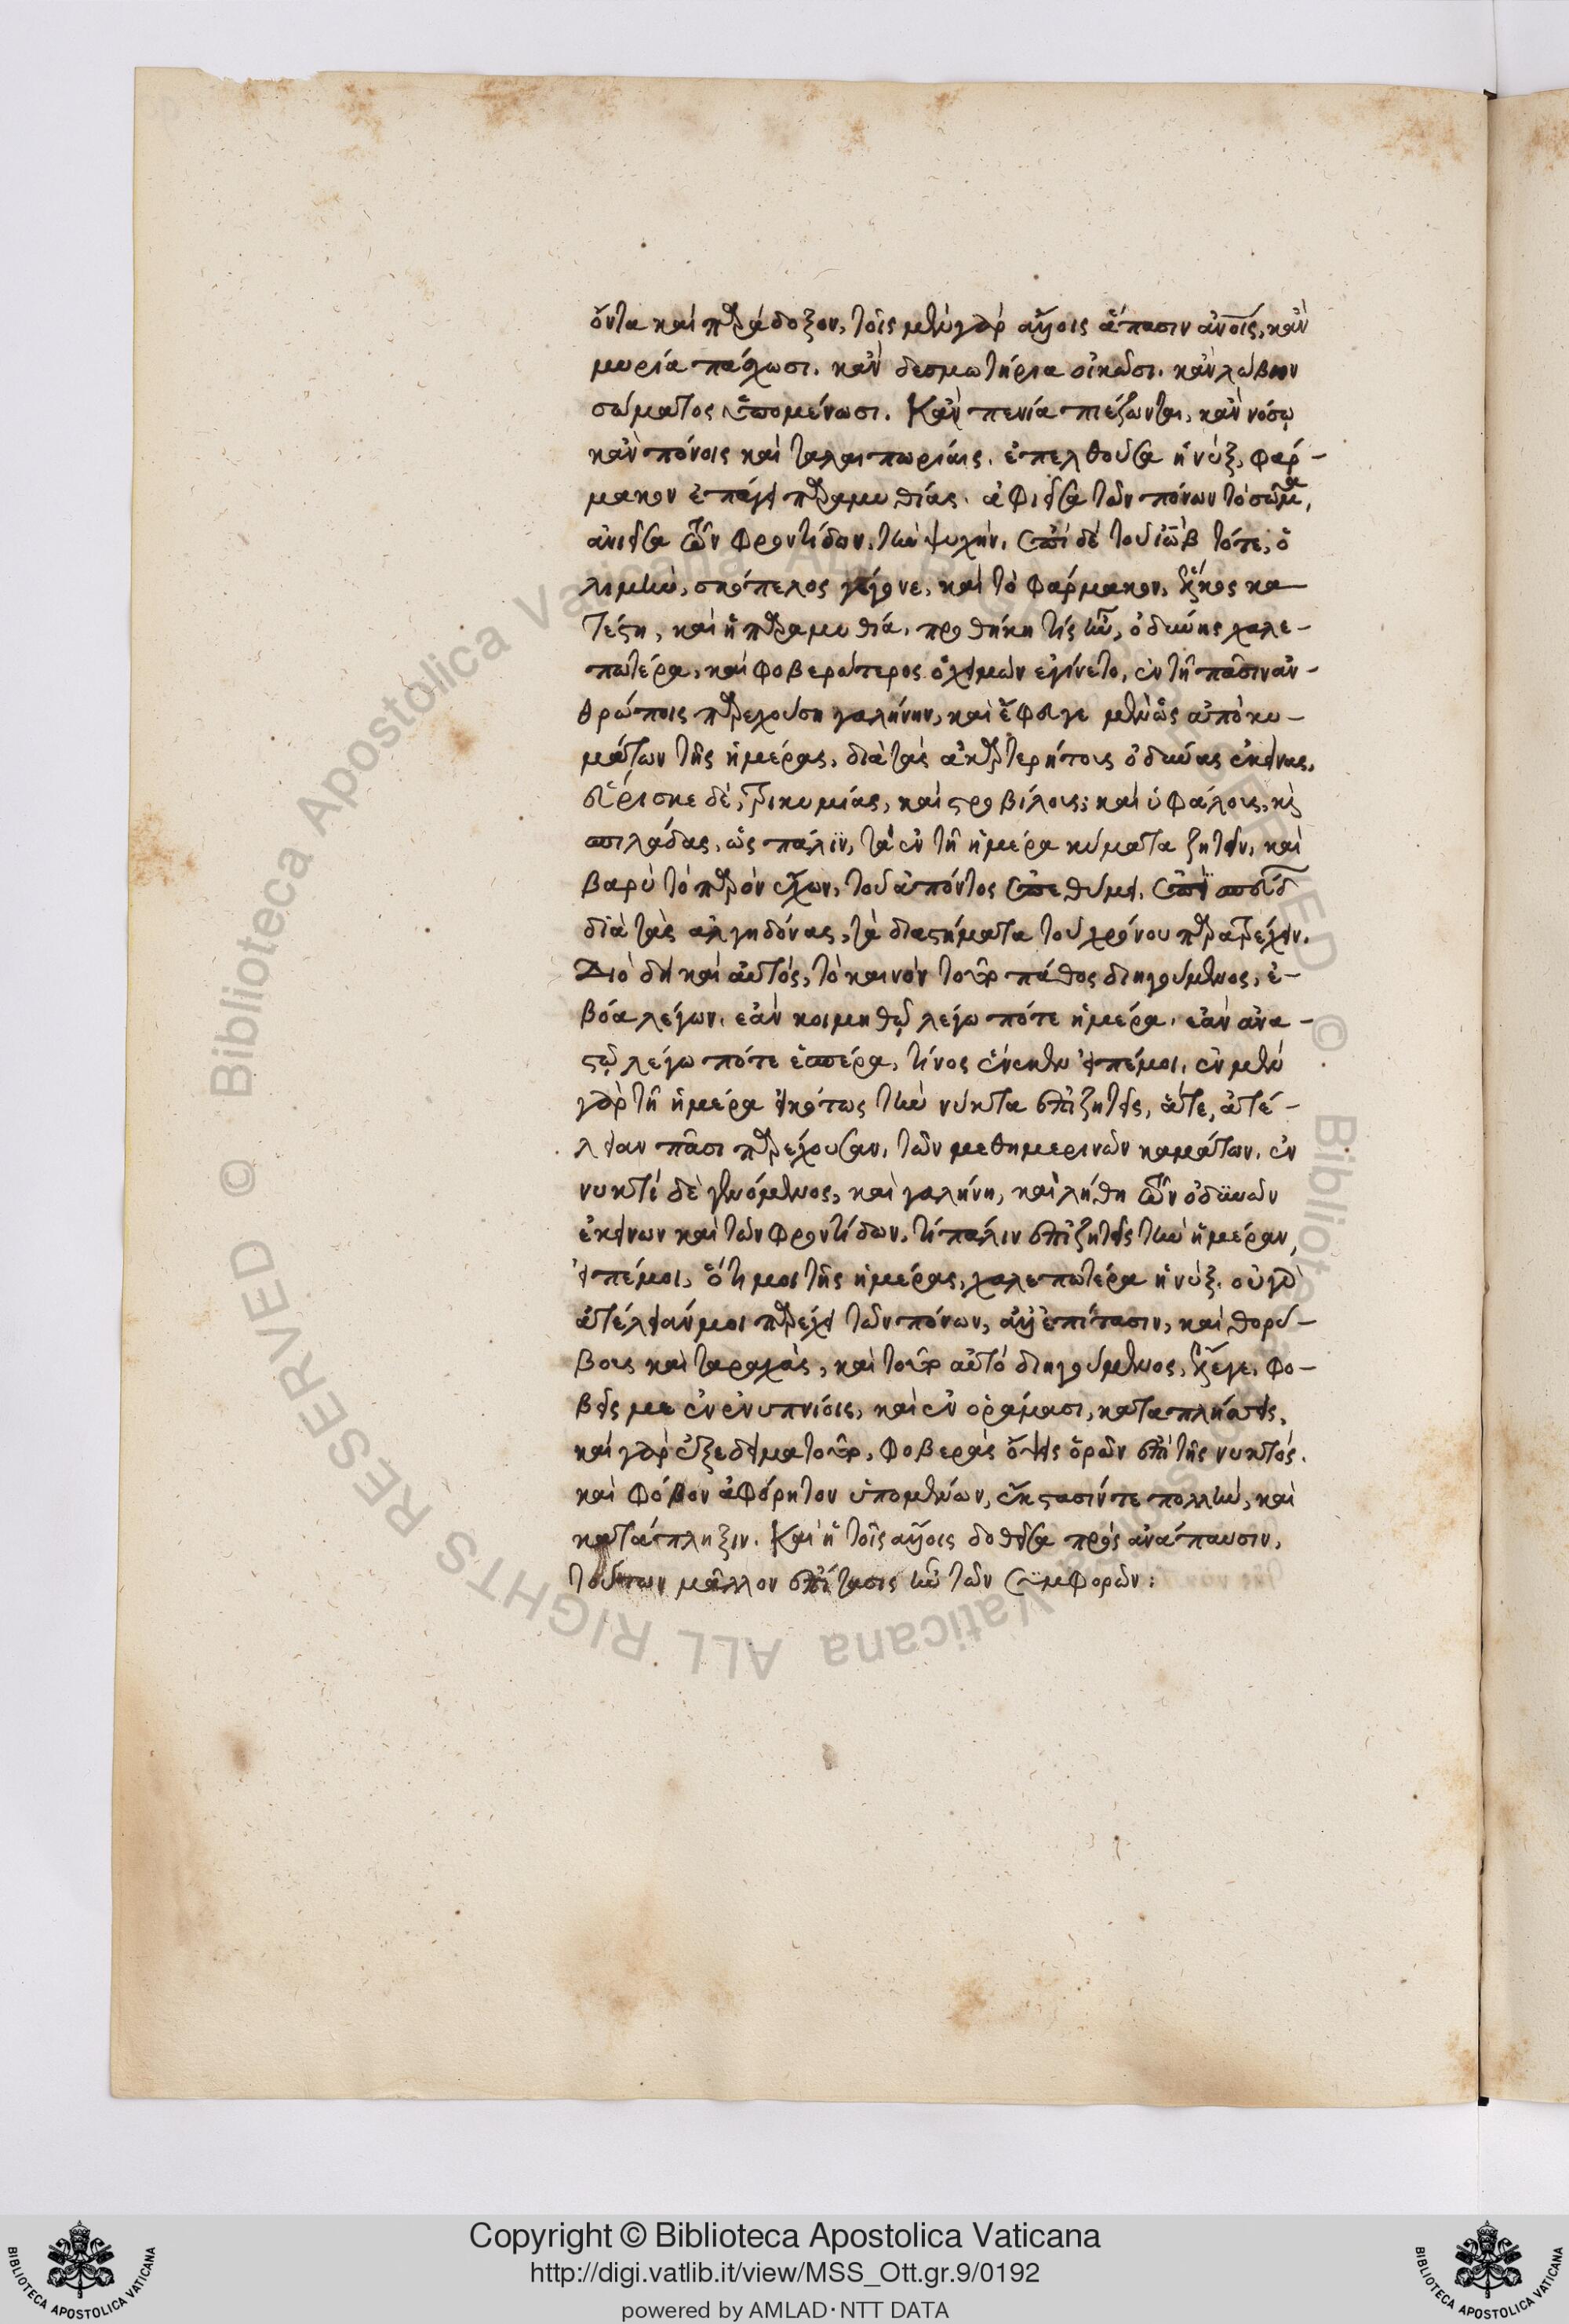 ὄντα καὶ παράδοξον, τοῖς μὲν γὰρ ἄλλοις ἅπασιν ἀνοις, κἂν
μυρία πάσχωσι. κἂν δεσμωτήρια οἰκῶσι. κἂν λώβην
σώματος ὑπομένωσι. Κἂν πενία πιέζωνται, κἂν νόσω
κἂν πόνοις καὶ ταλαιπωρίαις. ἐπελθοῦσα ἡ νὺξ, φάρ-
μακον ἐπάγει παραμυθίας. ἀφιεῖσα τῶν πόνων τὸ σῶμα,
ἀνιεῖσα τῶν φροντίδων, τὴν ψυχήν. ἐπὶ δὲ τοῦ ἰὼβ τότε, ὁ
λιμὴν, σκόπελος γέγονε, καὶ τὸ φάρμακον, ἕλκος κα
τέστη, καὶ ἡ παραμυθία, προσθήκη τίς ἦν, ὀδύνης χαλε-
πωτέρα, καὶ φοβερώτερος ὁ χειμὼν ἐγίνετο, ἐν τῆ πᾶσιν ἀν-
θρώποις παρεχούση γαλήνην, καὶ ἔφευγε μὲν ὡς ἀπὸ κυ-
μάτων τῆς ἡμέρας, διὰ τὰς ἀκαρτερήτους ὀδύνας ἐκείνας,
εὕρισκε δὲ, τρικυμίας, καὶ στροβίλους, καὶ ὑφάλους, καὶ
σπιλάδας, ὡς πάλιν, τὰ ἐν τῆ ἡμέρα κύματα ζητεῖν, καὶ
βαρὺ τὸ παρὸν ἔχων, τοῦ ἀπόντος ἐπεθύμει.
διὰ τὰς ἀλγηδόνας, τὰ διαστήματα τοῦ χρόνου παρατρέχειν.
Διὸ δὴ καὶ αὐτός, τὸ καινὸν τοῦτο πάθος διηγούμενος, ἐ-
βόα λέγων. ἐὰν κοιμηθῶ λέγω πότε ἡμέρα. ἐὰν ἀνα-
στῶ λέγω πότε ἑσπέρα, τίνος ἕνεκεν εἰπέ μοι. ἐν μὲν
γὰρ τῆ ἡμέρα εἰκότως τὴν νύκτα ἐπιζητεῖς, ἅτε, ἀτέ-
λειαν πᾶσι παρέχουσαν, τῶν μεθημερινῶν καμάτων. ἐν
νυκτὶ δὲ γενόμενος, καὶ γαλήνη, καὶ λήθη τῶν ὀδυνῶν
ἐκείνων καὶ τῶν φροντίδων, τί πάλιν ἐπιζητεῖς τὴν ἡμέραν,
εἰπέ μοι, ὅτι μοι τῆς ἡμέρας, χαλεπωτέρα ἡ νὺξ. οὐ γὰρ
ἀτέλειάν μοι παρέχει τῶν πόνων, ἀλλ' ἐπίτασιν, καὶ θορύ-
βους καὶ ταραχάς, καὶ τοῦτο αὐτὸ διηγούμενος, ἔλεγε, φο-
βεῖς με ἐν ἐνυπνίοις, καὶ ἐν ὁράμασι, καταπλήσσεις,
καὶ γὰρ ἐξεδειματοῦτο, φοβερὰς ὄψεις ὁρῶν ἐπὶ τῆς νυκτός.
καὶ φόβον ἀφόρητον ὑπομένων, ἔκστασίν τε πολλὴν, καὶ
κατάπληξιν. Καὶ ἡ τοῖς ἄλλοις δοθεῖσα πρὸς ἀνάπαυσιν,
τούτων μᾶλλον ἐπίτασις ἦν τῶν συμφορῶν:
Copyright © Biblioteca Apostolica Vaticana
http://digi.vatlib.it/view/MSS_Ott.gr.9/0192
powered by AMLAD·NTT DATA